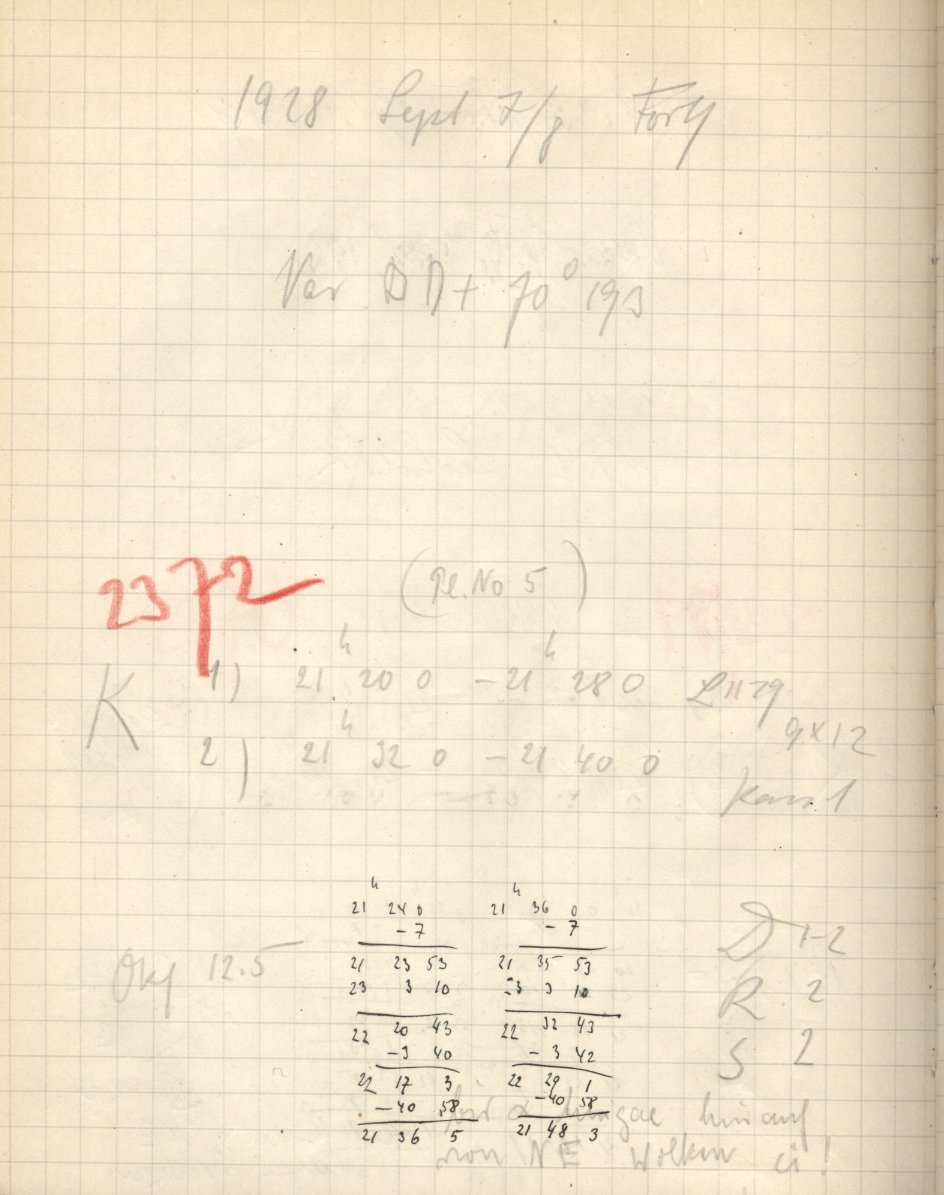 1928 Sept 7/8 Forts
Var BD + 70° 193
2372
(Pl. No 5)
K 1) 21ʰ 20 0 – 21ʰ 28 0
9x12
2) 21ʰ 32 0 – 21 40 0
21ʰ 24 0 21ʰ 36 0
– 7 – 7
Okj 12.5 21 23 53 21 35 53 D 1-2
23 3 10 23 3 10 R 2
22 20 43 22 32 43
– 3 40 – 3 42 S 2
22 17 3 22 29 1
– 40 58 – 40 58
bis α hinauf
21 36 5 21 48 3
von NE Wolken ci!